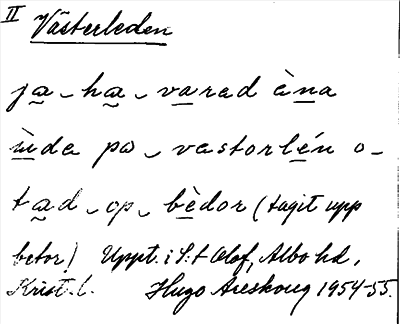 II Västerleden
ja ha varad àna
ùda på vastorlén o-
tad op bèdor (tagit upp
betor) Uppt. i S:t Olof, Albo hd,
Krist. l. Hugo Areskoug 1954-55.